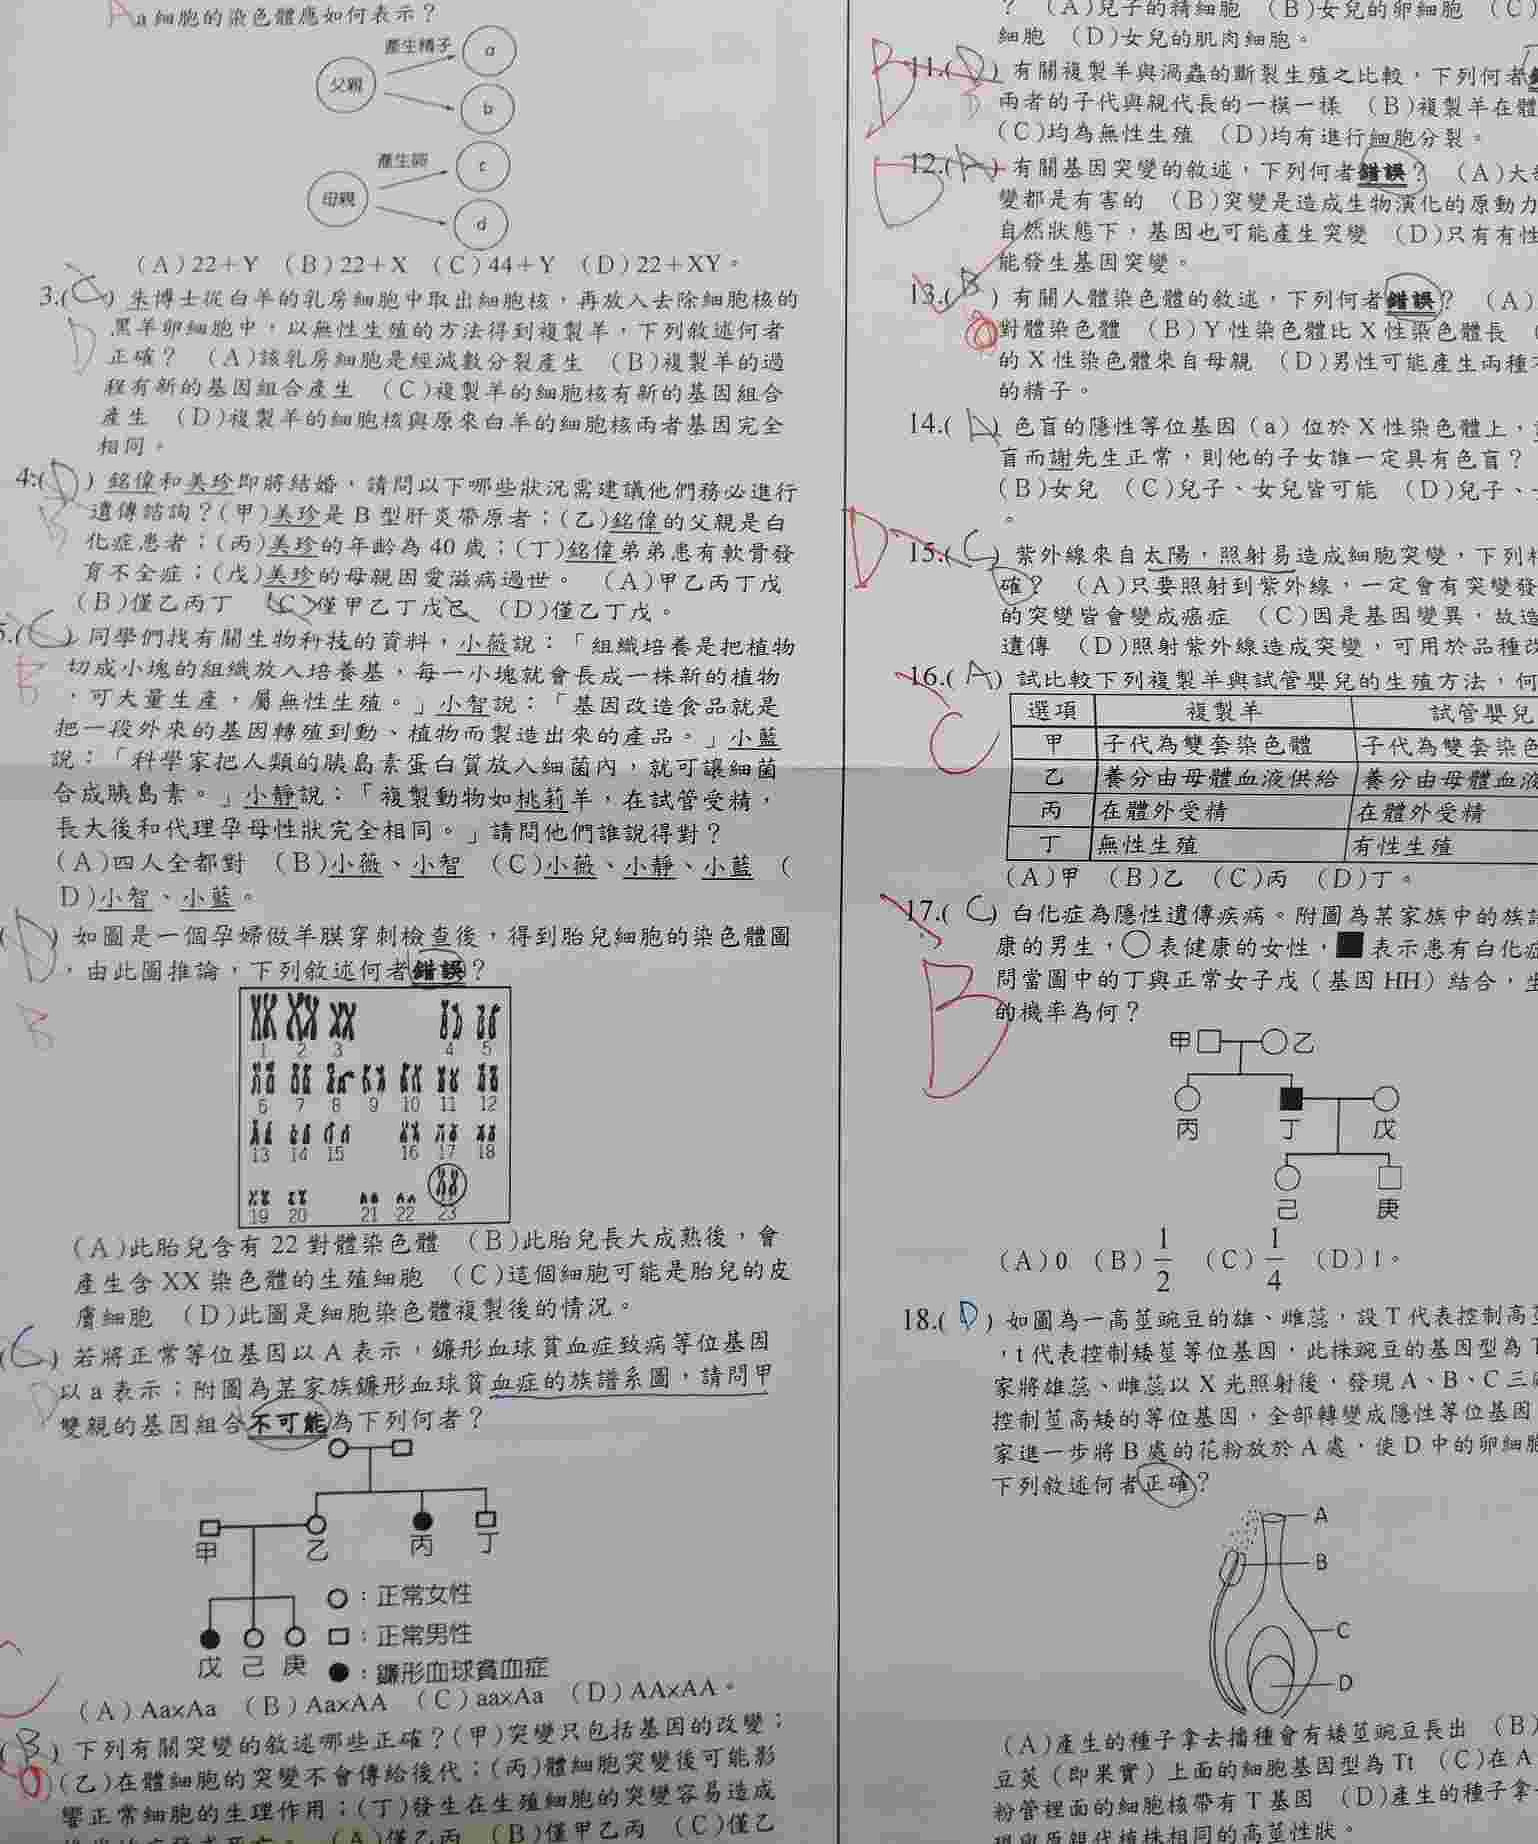 a細胞的染色體應如何表示？
產生精子
父親
a
b
產生卵
母親
c
d
(A)22+Y (B)22+X (C)44+Y (D)22+XY。
3.(C) 朱博士從白羊的乳房細胞中取出細胞核，再放入去除細胞核的
黑羊卵細胞中，以無性生殖的方法得到複製羊，下列敘述何者
正確？ (A)該乳房細胞是經減數分裂產生 (B)複製羊的過
程有新的基因組合產生 (C)複製羊的細胞核有新的基因組合
產生 (D)複製羊的細胞核與原來白羊的細胞核兩者基因完全
相同。
D
4.(D) 銘偉和美珍即將結婚，請問以下哪些狀況需建議他們務必進行
遺傳諮詢？(甲)美珍是B型肝炎帶原者；(乙)銘偉的父親是白
化症患者；(丙)美珍的年齡為40歲；(丁)銘偉弟弟患有軟骨發
育不全症；(戊)美珍的母親因愛滋病過世。 (A)甲乙丙丁戊
(B)僅乙丙丁 (C)僅甲乙丁戊己 (D)僅乙丁戊。
B
5.(C) 同學們找有關生物科技的資料，小薇說：「組織培養是把植物
切成小塊的組織放入培養基，每一小塊就會長成一株新的植物
，可大量生產，屬無性生殖。」小智說：「基因改造食品就是
把一段外來的基因轉殖到動、植物而製造出來的產品。」小藍
說：「科學家把人類的胰島素蛋白質放入細菌內，就可讓細菌
合成胰島素。」小靜說：「複製動物如桃莉羊，在試管受精，
長大後和代理孕母性狀完全相同。」請問他們誰說得對？
(A)四人全都對 (B)小薇、小智 (C)小薇、小靜、小藍 (
D)小智、小藍。
B
(D) 如圖是一個孕婦做羊膜穿刺檢查後，得到胎兒細胞的染色體圖
，由此圖推論，下列敘述何者錯誤？
B
1 2 3 4 5
6 7 8 9 10 11 12
13 14 15 16 17 18
19 20 21 22 23
(A)此胎兒含有22對體染色體 (B)此胎兒長大成熟後，會
產生含XX染色體的生殖細胞 (C)這個細胞可能是胎兒的皮
膚細胞 (D)此圖是細胞染色體複製後的情況。
(C) 若將正常等位基因以A表示，鐮形血球貧血症致病等位基因
以a表示；附圖為某家族鐮形血球貧血症的族譜系圖，請問甲
雙親的基因組合不可能為下列何者？
D
甲 乙 丙 丁
戊 己 庚
○：正常女性
□：正常男性
●：鐮形血球貧血症
(A)Aa×Aa (B)Aa×AA (C)aa×Aa (D)AA×AA。
(B) 下列有關突變的敘述哪些正確？(甲)突變只包括基因的改變；
(乙)在體細胞的突變不會傳給後代；(丙)體細胞突變後可能影
響正常細胞的生理作用；(丁)發生在生殖細胞的突變容易造成
(A)僅乙丙 (B)僅甲乙丙 (C)僅乙
？ (A)兒子的精細胞 (B)女兒的卵細胞 (C)
細胞 (D)女兒的肌肉細胞。
B
11.(D) 有關複製羊與渦蟲的斷裂生殖之比較，下列何者
兩者的子代與親代長的一模一樣 (B)複製羊在體
(C)均為無性生殖 (D)均有進行細胞分裂。
D
12.(A) 有關基因突變的敘述，下列何者錯誤？ (A)大
變都是有害的 (B)突變是造成生物演化的原動力
自然狀態下，基因也可能產生突變 (D)只有有性
能發生基因突變。
13.(B) 有關人體染色體的敘述，下列何者錯誤？ (A)
對體染色體 (B)Y性染色體比X性染色體長
的X性染色體來自母親 (D)男性可能產生兩種
的精子。
14.(D) 色盲的隱性等位基因(a)位於X性染色體上，
盲而謝先生正常，則他的子女誰一定具有色盲？
(B)女兒 (C)兒子、女兒皆可能 (D)兒子、
。
D
15.(C) 紫外線來自太陽，照射易造成細胞突變，下列
確？ (A)只要照射到紫外線，一定會有突變發
的突變皆會變成癌症 (C)因是基因變異，故造
遺傳 (D)照射紫外線造成突變，可用於品種改
16.(A) 試比較下列複製羊與試管嬰兒的生殖方法，何
C
選項 複製羊 試管嬰兒
甲 子代為雙套染色體 子代為雙套染色
乙 養分由母體血液供給 養分由母體血液
丙 在體外受精 在體外受精
丁 無性生殖 有性生殖
(A)甲 (B)乙 (C)丙 (D)丁。
17.(C) 白化症為隱性遺傳疾病。附圖為某家族中的族譜
康的男生，○表健康的女性，■表示患有白化症
問當圖中的丁與正常女子戊(基因HH)結合，生
的機率為何？
B
甲 乙
丙 丁 戊
己 庚
(A)0 (B)1/2 (C)1/4 (D)1。
18.(D) 如圖為一高莖豌豆的雄、雌蕊，設T代表控制高莖
，t代表控制矮莖等位基因，此株豌豆的基因型為T
家將雄蕊、雌蕊以X光照射後，發現A、B、C三處
控制莖高矮的等位基因，全部轉變成隱性等位基因
家進一步將B處的花粉放於A處，使D中的卵細胞
下列敘述何者正確？
A
B
C
D
(A)產生的種子拿去播種會有矮莖豌豆長出 (B)
豆莢(即果實)上面的細胞基因型為Tt (C)在A
粉管裡面的細胞核帶有T基因 (D)產生的種子拿
現與原親代植株相同的高莖性狀。